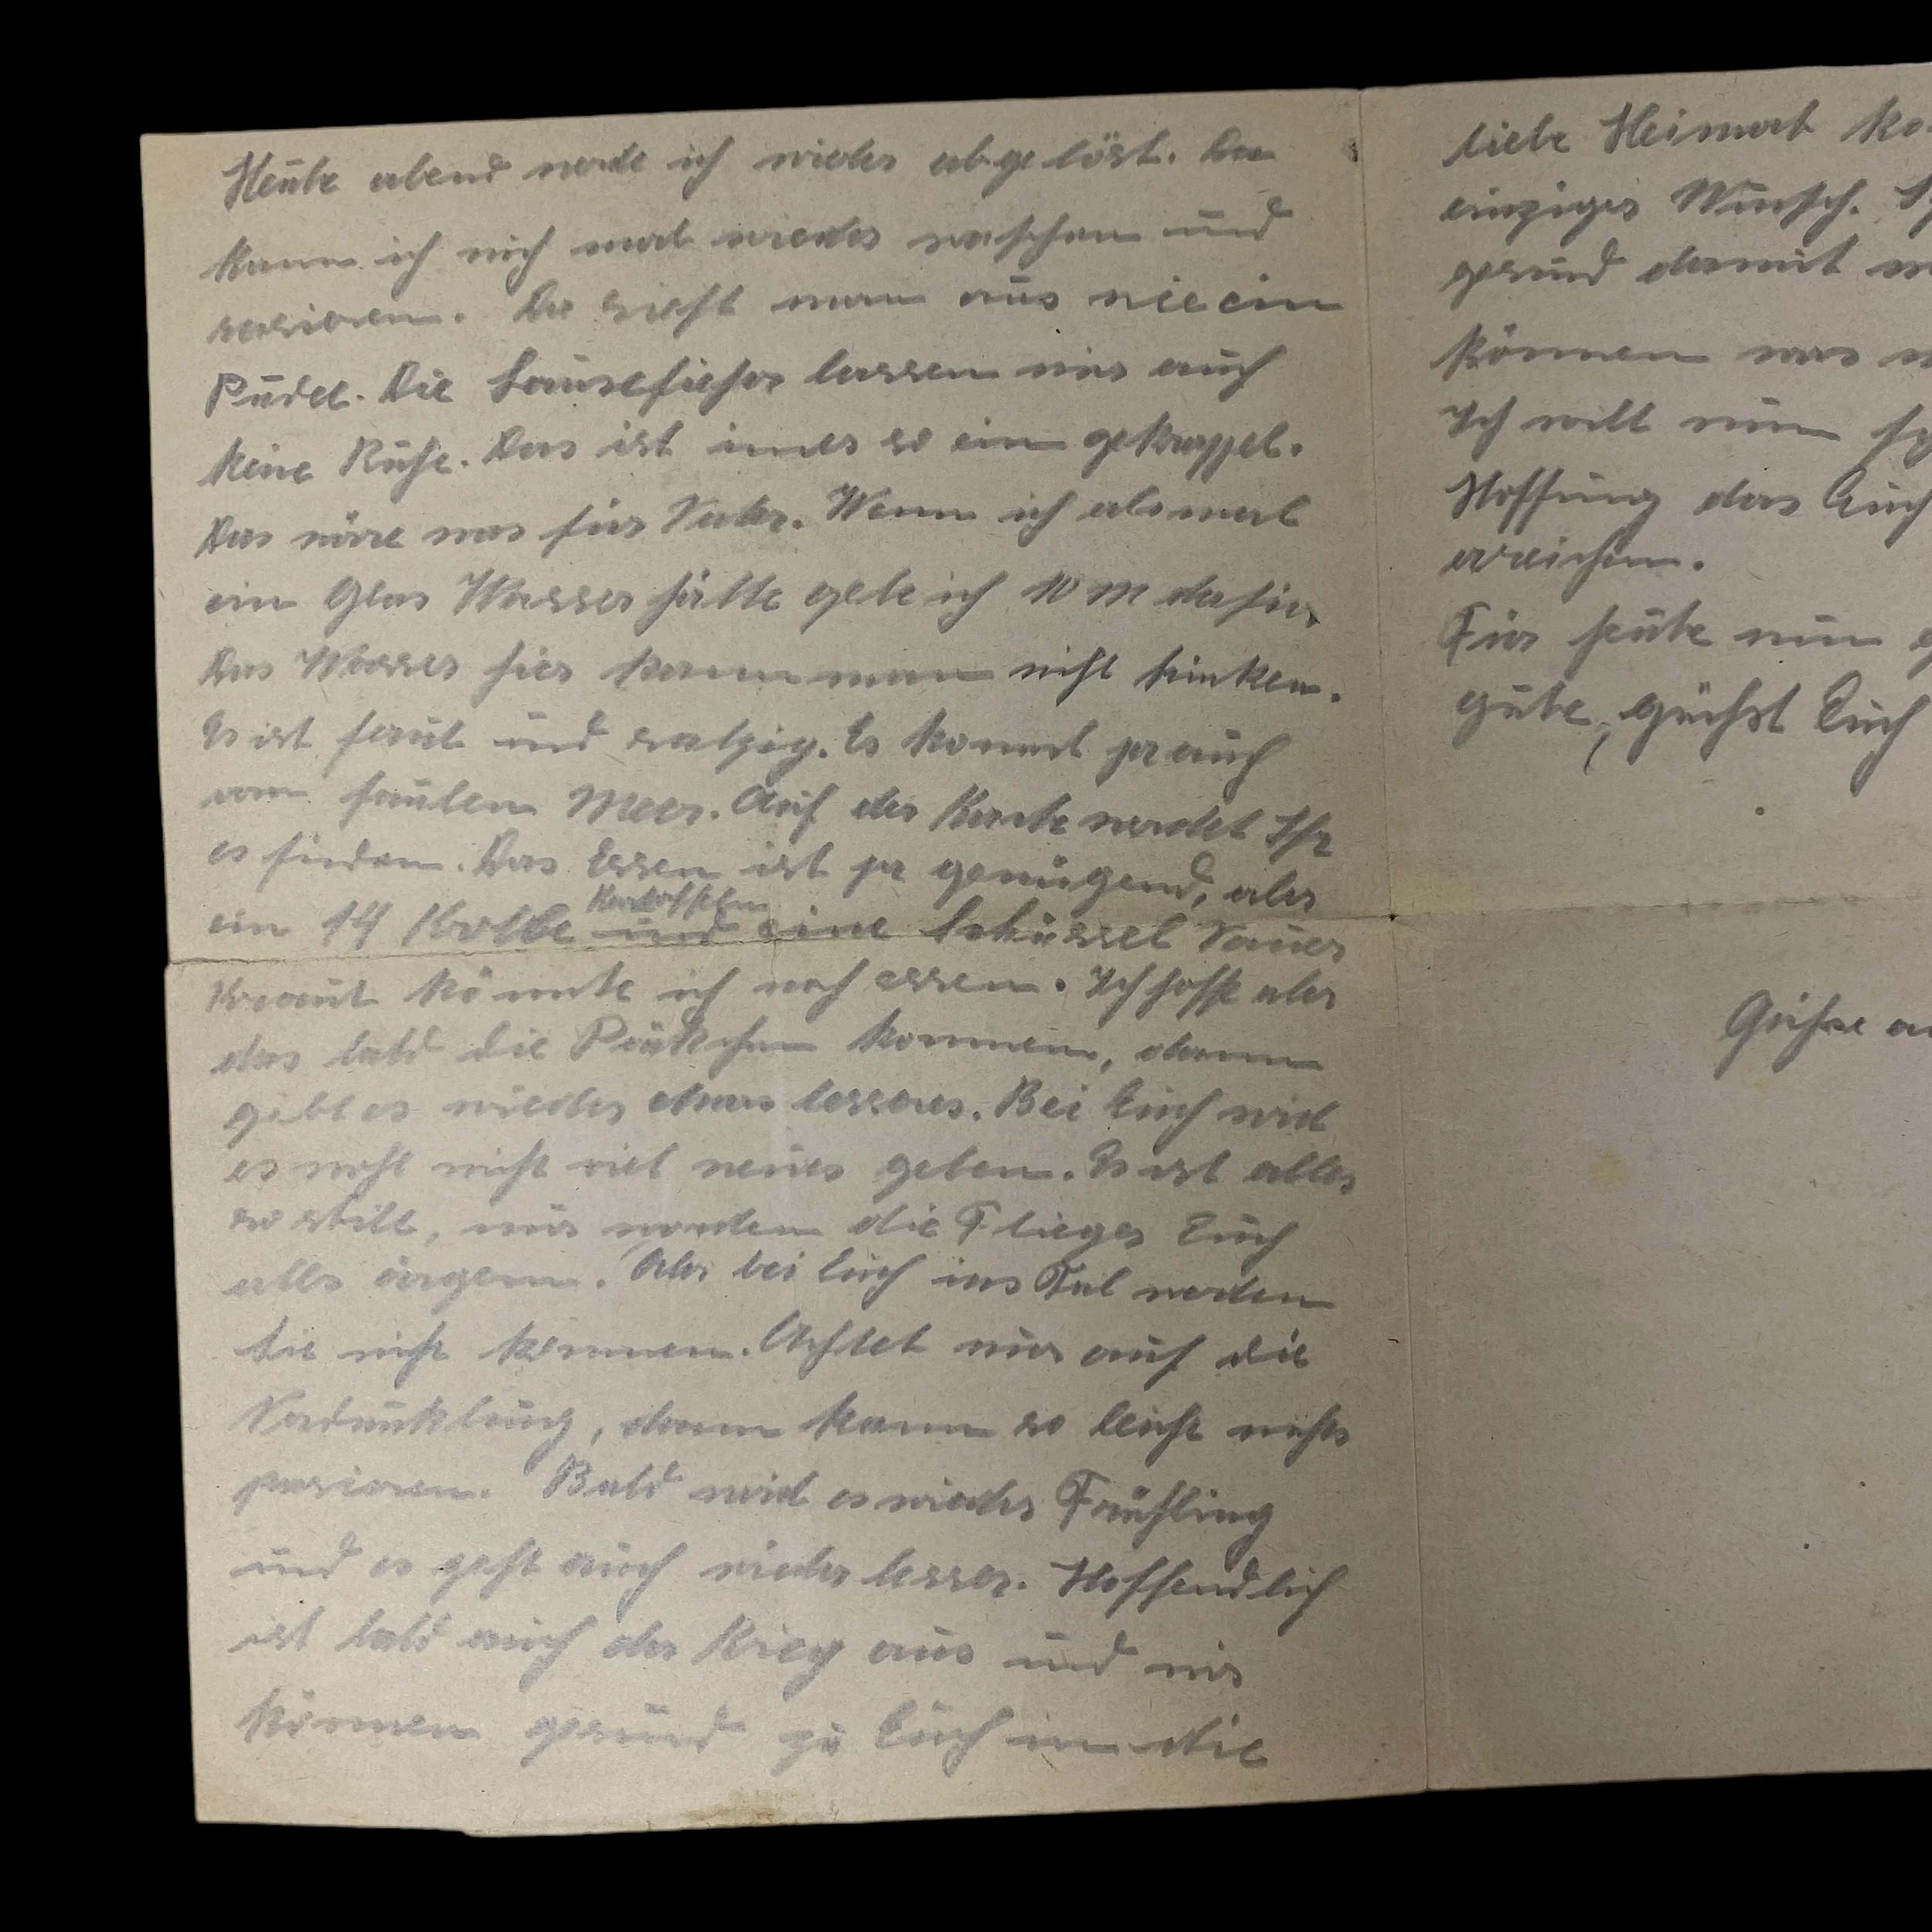 Heute abend werde ich wieder abgelöst. Da
kann ich mich mal wieder waschen und
rasieren. Da sieht man aus wie ein
Pudel. Die Läuseficher lassen uns auch
keine Ruhe. Das ist immer so ein gekrappel.
Das wäre was für Vater. Wenn ich als mal
ein Glas Wasser hätte gebe ich 10 M dafür.
Das Wasser hier kann man nicht trinken.
Es ist faul und salzig. Es kommt ja auch
vom faulen Meer. Auf der Karte werdet Ihr
es finden. Das Essen ist ja genügend, aber
Kartoffeln
ein 14 und eine Schüssel Sauer
Kraut könnte ich noch essen. Ich hoffe aber
das bald die Päckchen kommen, dann
gibt es wieder etwas besseres. Bei Euch wird
es wohl nicht viel neues geben. Es ist alles
so still, nur werden die Flieger Euch
alls ärgern. Aber bei Euch ins Tal werden
sie nicht kommen. Achtet nur auf die
Verdunklung, dann kann so leicht nichts
pasieren. Bald wird es wieder Frühling
und es geht auch wieder besser. Hoffendlich
ist bald auch der Krieg aus und wir
können gesund zu Euch in die
liebe Heimat
einziger Wunsch.
gesund damit
können was
Ich will nun
Hoffnung das Euch
erreichen.
Für heute nun
gute, grüßst Euch
Grüße